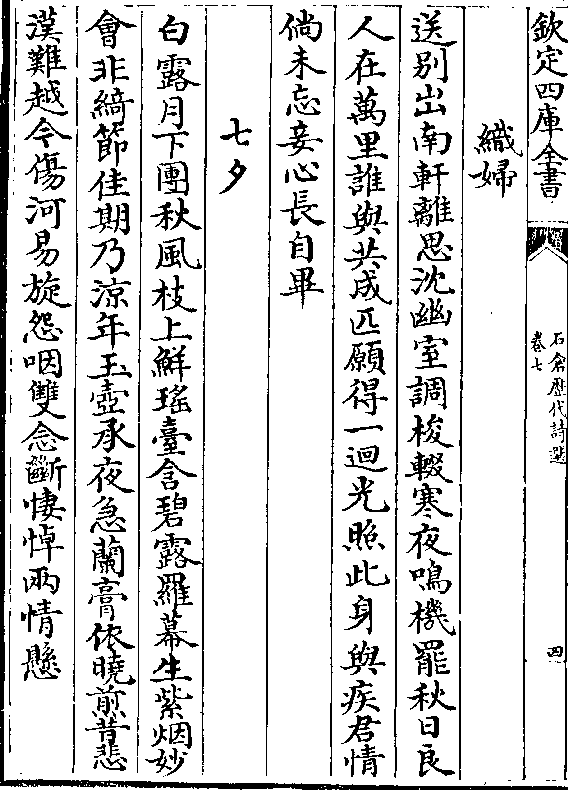 欽定四庫全書
石倉歷代詩選
卷七
四
織婦
送別出南軒離思沈幽室調梭輟寒夜鳴機罷秋日良
人在萬里誰與共成匹願得一迴光照此身與疾君情
倘未忘妾心長自畢
七夕
白露月下團秋風枝上鮮瑤臺含碧露羅幕生紫烟妙
會非綺節佳期乃涼年玉壺承夜急蘭膏依曉煎昔悲
漢難越今傷河易旋怨咽雙念斷悽悼兩情懸